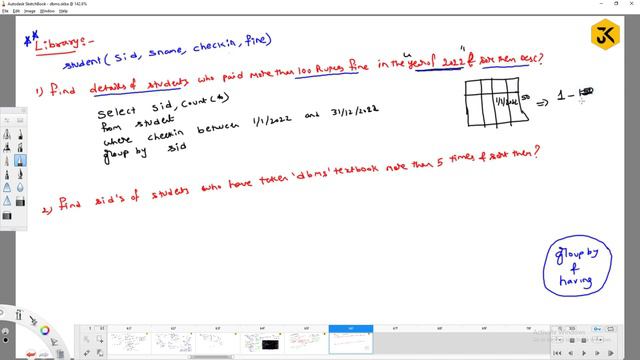 Autodesk SketchBook - dbms.skba @ 142.9%
File Edit Image Window Help
** Library:-
student( sid, sname, checkin, fine)
3K
1) Find details of students who paid more than 100 Rupees fine in the "year of 2022" & sort then DESC?
Select sid, Count(*)
from student
where checkin between 1/1/2022 and 31/12/2022
group by sid
1/1/2022 50 ⇒ 1 -
2) Find sid's of students who have taken 'dbms' textbook more than 5 times & sort then?
group by
&
having
Activate Windows